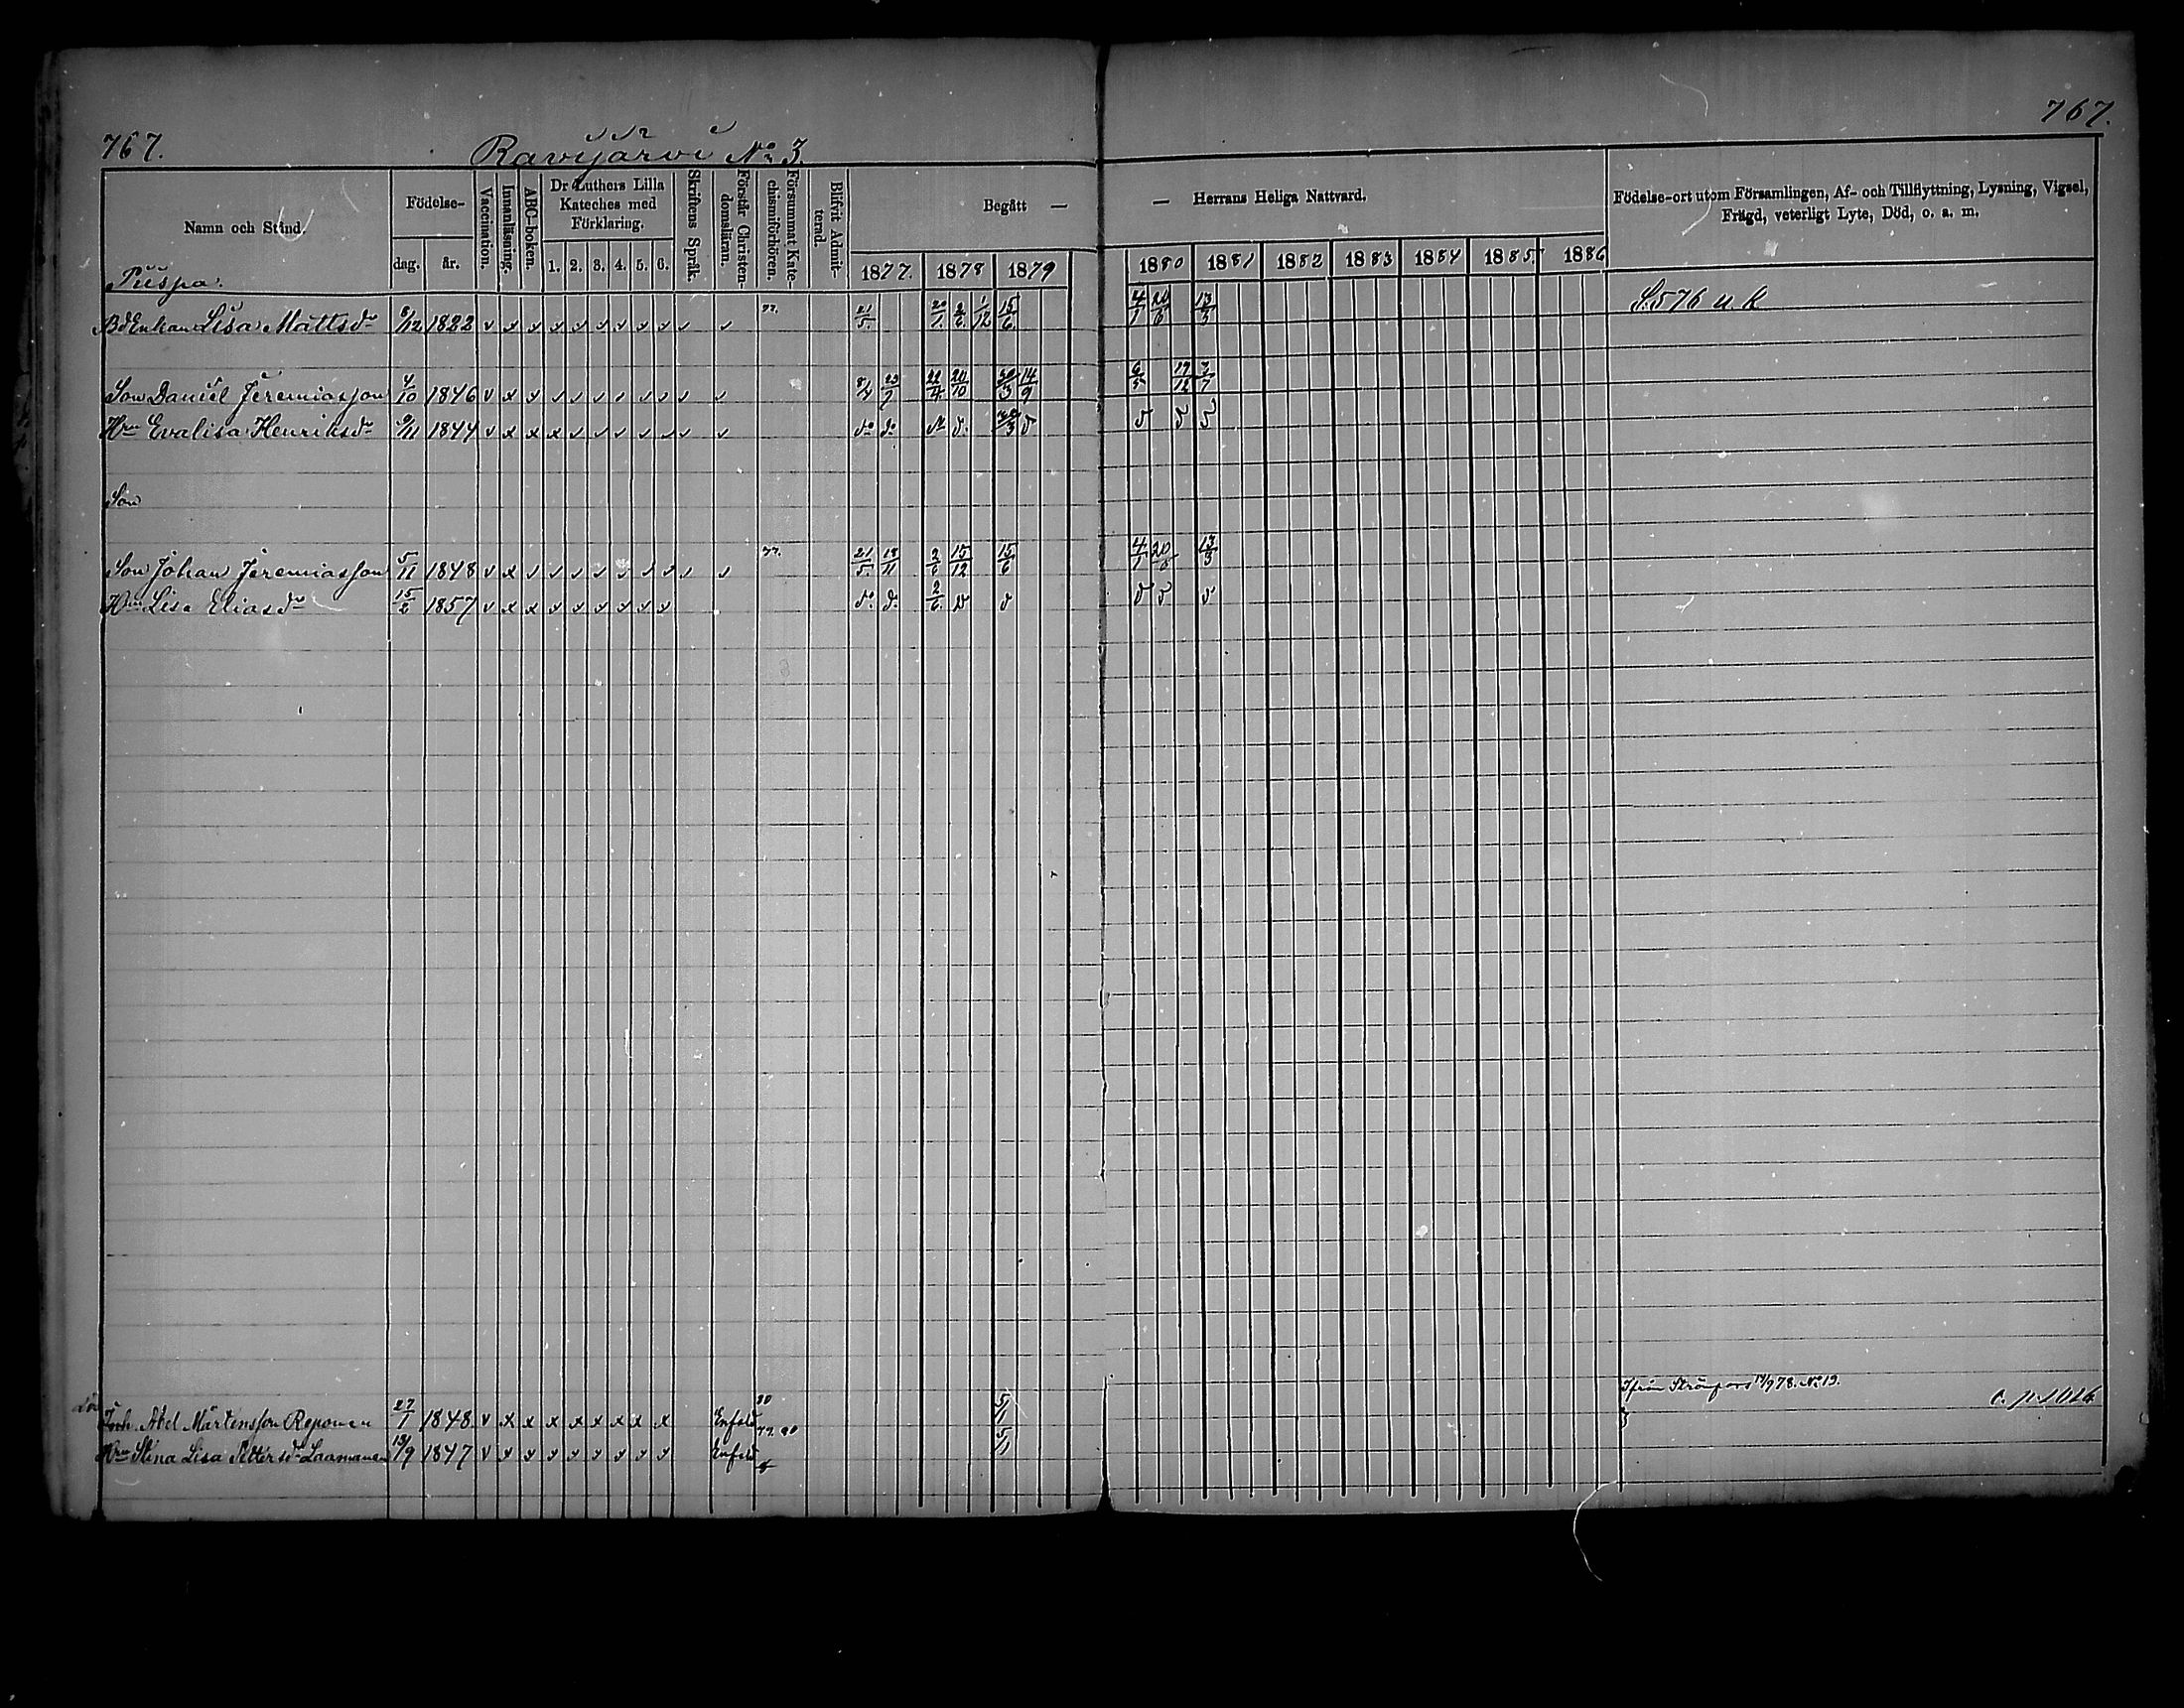 767.
767.
Ravijärvi No 3.
Namn och Stånd.
Födelse-
dag. år.
Vaccination.
Innanläsning.
ABC-boken.
Dr Luthers Lilla Kateches med Förklaring.
1. 2. 3. 4. 5. 6.
Skriftens Språk.
Förstår Christen-domsläran.
Försummat Kate-chismiförhören.
Blifvit Admit-terad.
Begått —
— Herrans Heliga Nattvard.
1877. 1878 1879
1880 1881 1882 1883 1884 1885. 1886
Födelse-ort utom Församlingen, Af- och Tillflyttning, Lysning, Vigsel,
Frägd, veterligt Lyte, Död, o. a. m.
Enkan Lisa Mattsdr 6/12 1822 v x x x x x x x x 77. 21/5. 2/6 1/12 15/6 4/1 13/3 S. 576 u. k
Son Daniel Jeremiasson 4/10 1846 v x 22/4. 20/10 30/3 14/9 6/5 19/12 3/7
Hru Evalisa Henriksdr 9/11 1844 v x x x do do
Son
Son Johan Jeremiasson 5/11 1848 v x 77. 21/5. 18/11 2/6 15/12 15/6 4/1 13/3
Hru Lisa Eliasdr 15/2 1857 v x x do do 2/6
Ifrån Strömfors 978. No 19.
Joh. Abel Mårtensson Reponen 27/1 1848 v x x x x x x x x Enfald 80 5/1
Hru Stina Lisa Pettersdr Laamanen 13/9 1847 v x x x x x x x x Enfald 77. 80 5/1